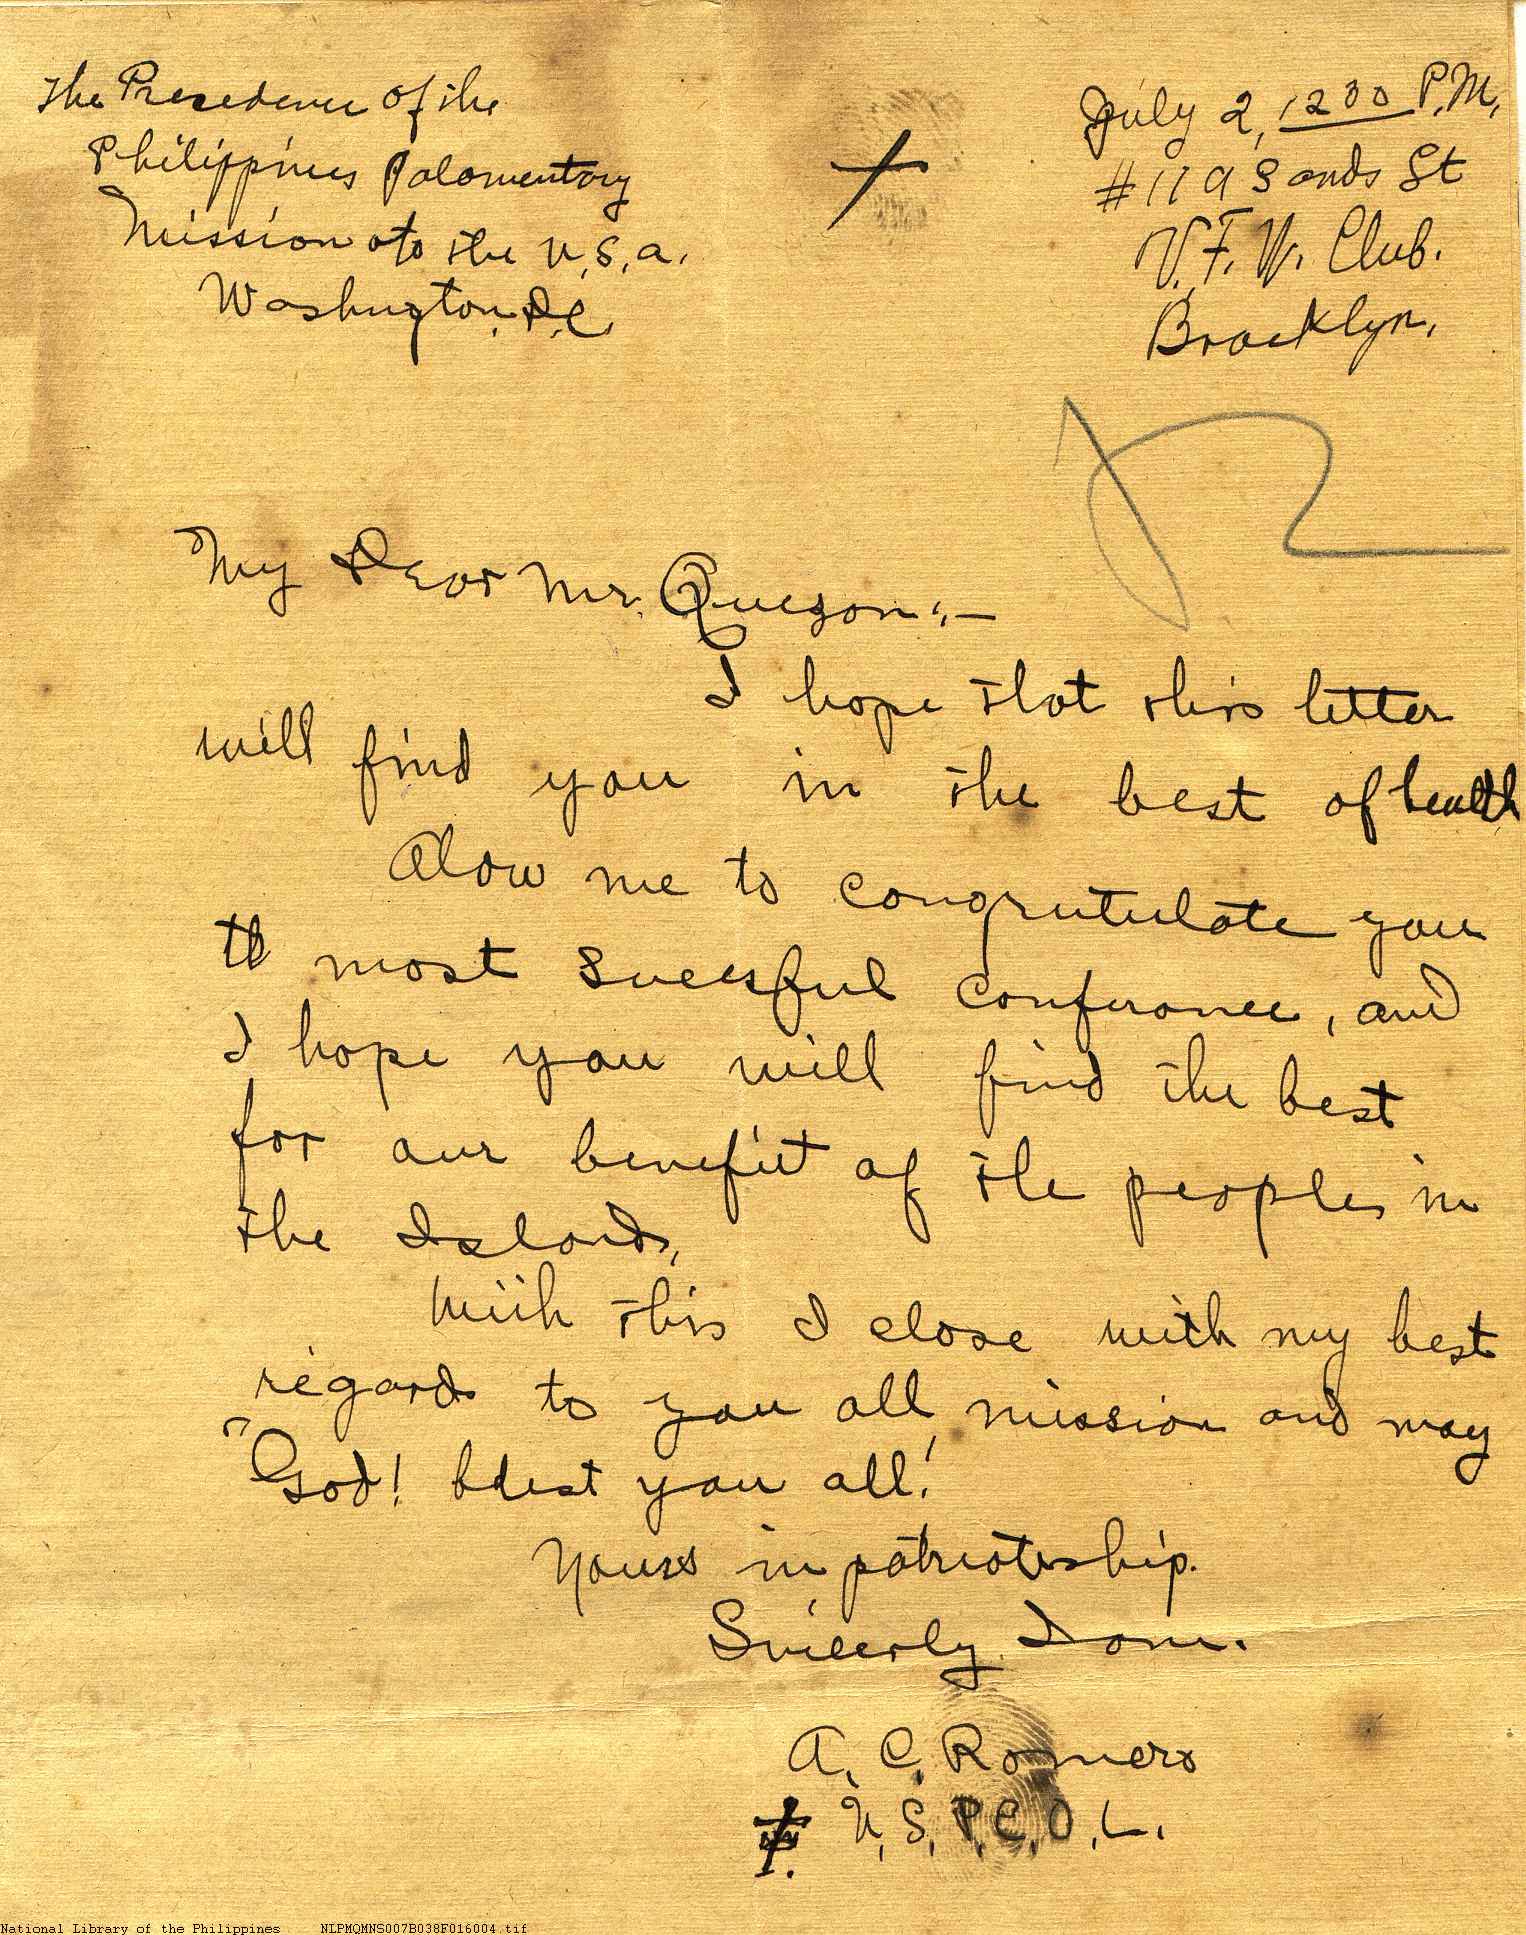 The Presedence of the
Philippines Palomentory
Mission to the U.S.A.
Washington, D.C.
July 2, 1230 P.M.
#119 Sands St
V.F.W. Club.
Brooklyn,
My Dear Mr. Quezon:—
I hope that this letter
will find you in the best of health
Alow me to congrutulate you
most sucessful conferance, and
I hope you will find the best
for our benefiet of the people in
the Islands,
With this I close with my best
regards to you all, mission and may
"God! blest you all!
Yours in patriotship.
Sincerly I am.
A. C. Romero
U.S.P.C.O.L.
National Library of the Philippines NLPMQMNS007B038F016004.tif